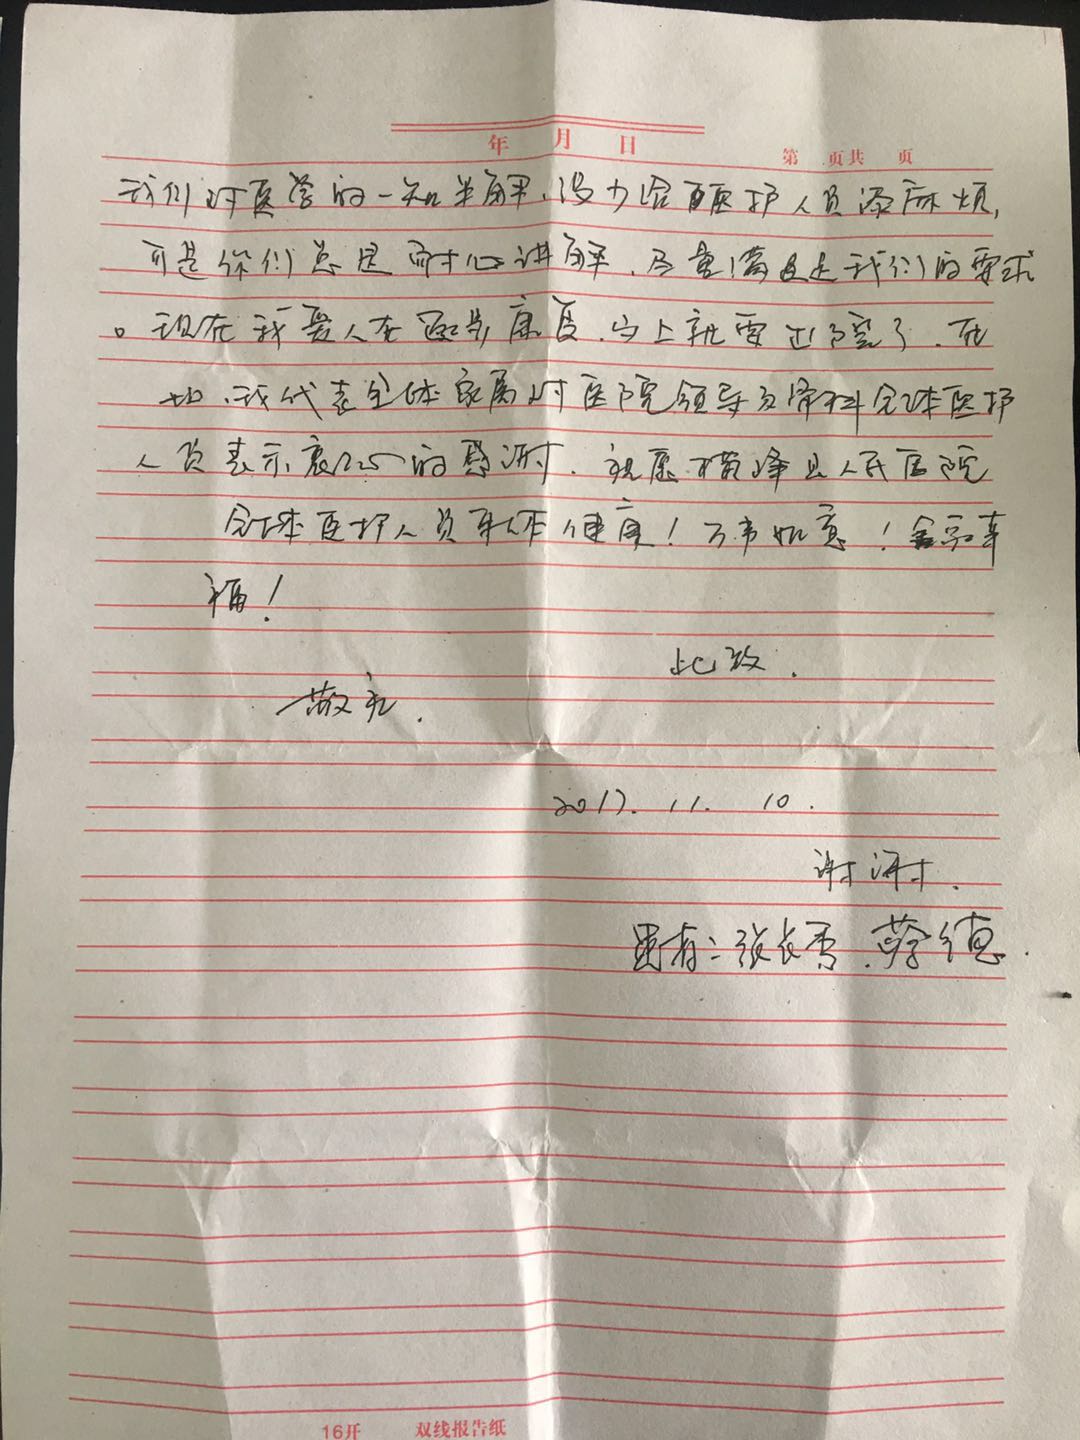 年 月 日
第 页共 页
我们对医学的一知半解、没少给医护人员添麻烦,
可是你们总是耐心讲解、尽量满足我们的要求
。现在我爱人在逐步康复、马上就要出院了、在
此、我代表全体家属对医院领导及骨科全体医护
人员表示衷心的感谢.祝愿横峰县人民医院
全体医护人员身体健康!万事如意!全家幸
福!
此致.
敬礼.
2017.11.10.
谢谢.
患者:张长香.蔡德.
16开 双线报告纸